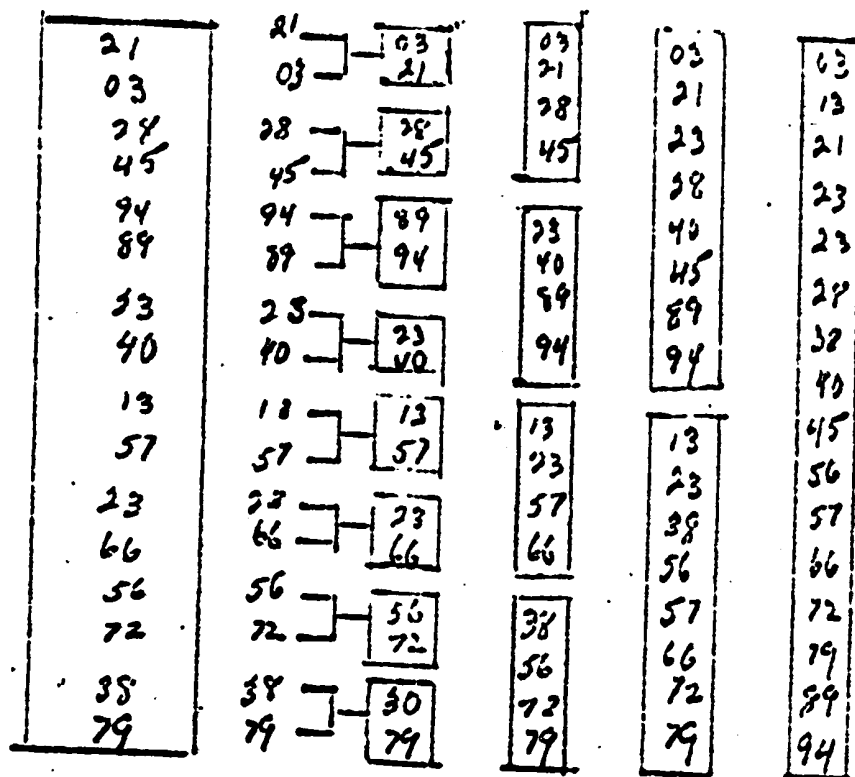 21
03
28
45
94
89
23
40
13
57
23
66
56
72
38
79
21
03
28
45
94
89
23
40
13
57
23
66
56
72
38
79
03
21
28
45
89
94
23
40
13
57
23
66
56
72
30
79
03
21
28
45
23
40
89
94
13
23
57
66
38
56
72
79
03
21
23
28
40
45
89
94
13
23
38
56
57
66
72
79
03
13
21
23
23
28
38
40
45
56
57
66
72
79
89
94